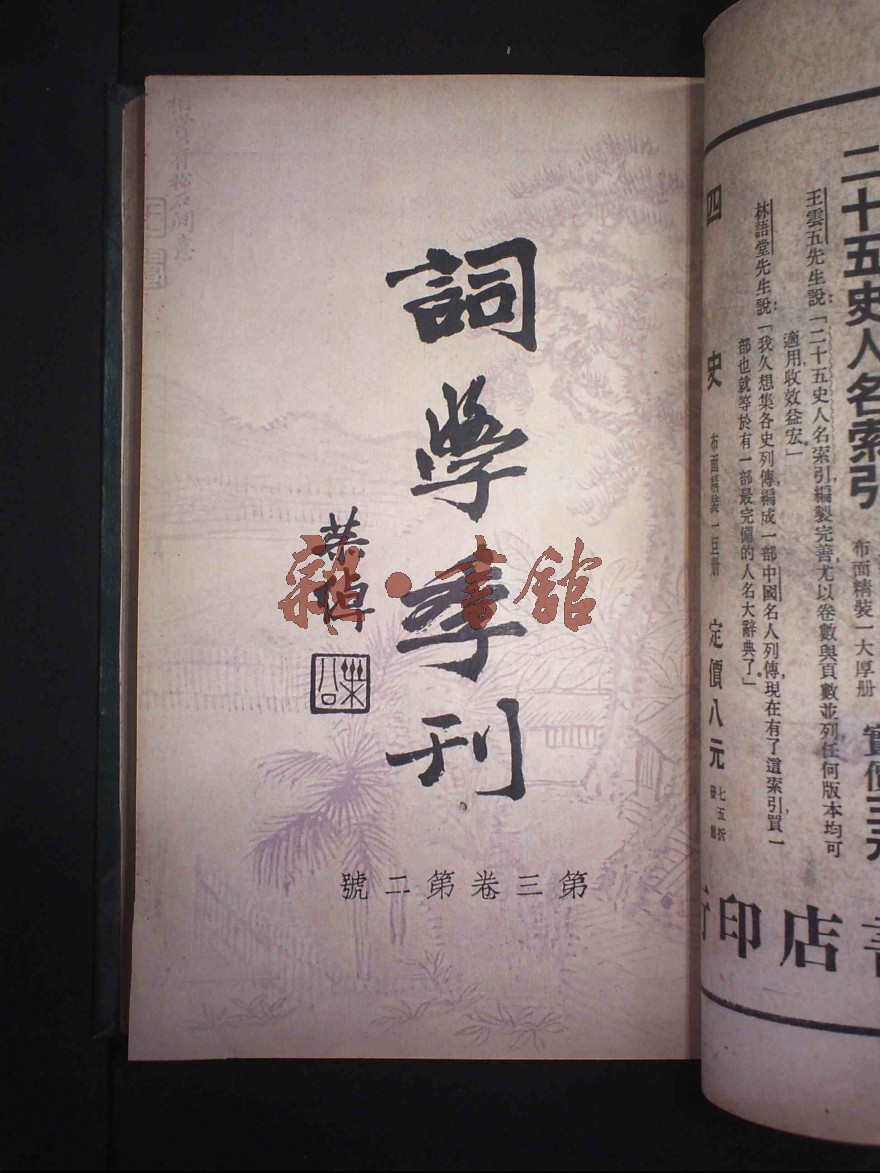 詞學季刊
第三卷第二號
雜·書館
二十五史人名索引
布面精裝一大厚册
實價三元
王雲五先生說：「二十五史人名索引，編製完善，尤以卷數與頁數並列，任何版本均可
適用，收效益宏。」
林語堂先生說：「我久想集各史列傳，編成一部中國名人列傳，現在有了這索引，買一
部也就等於有一部最完備的人名大辭典了。」
四史
布面精裝一巨册
定價八元
七五折
店印